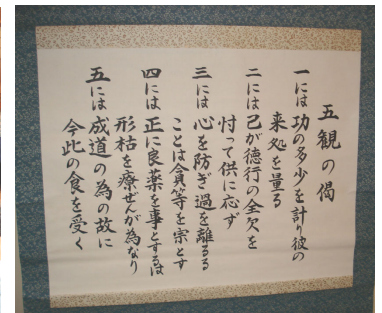 五観の偈
一には功の多少を計り彼の
来処を量る
二には己が徳行の全欠を
忖って供に応ず
三には心を防ぎ過を離るる
ことは貪等を宗とす
四には正に良薬を事とするは
形枯を療ぜんが為なり
五には成道の為の故に
今此の食を受く